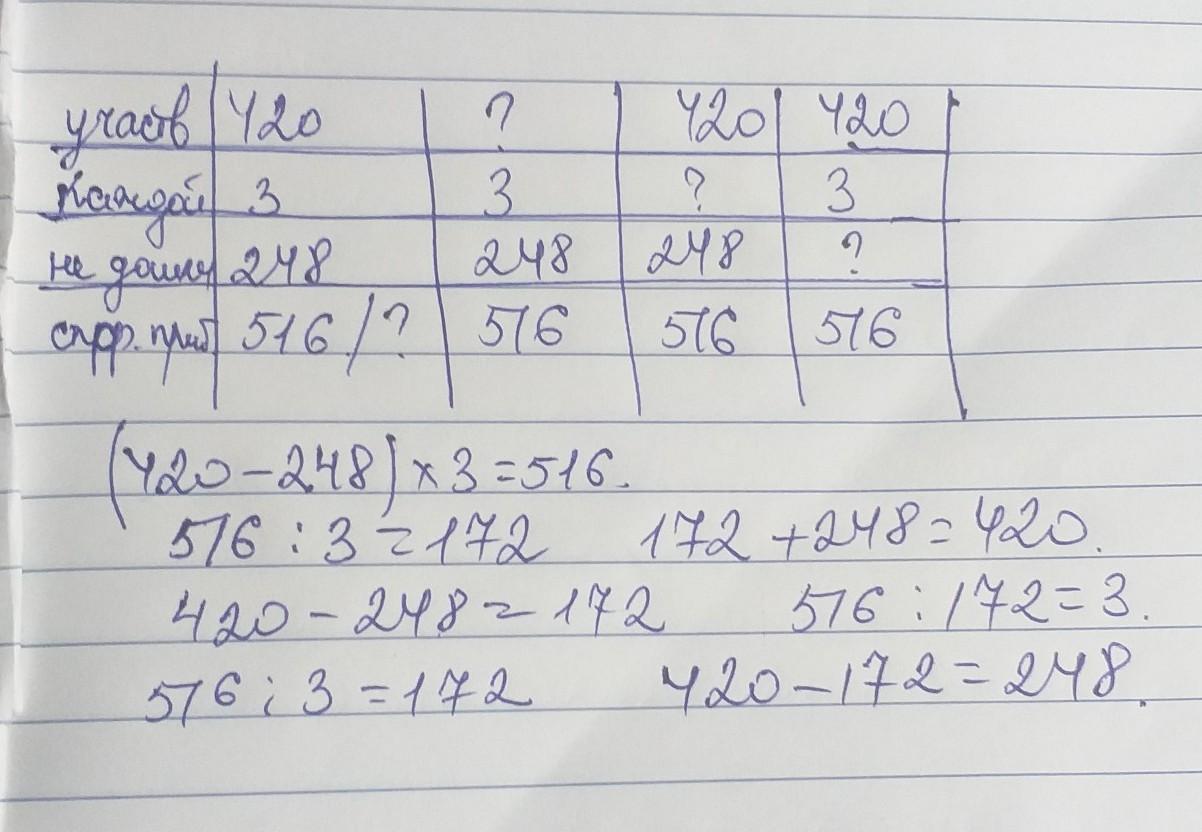 участв 420 ? 420 420
Каждой 3 3 ? 3
не дошли 248 248 248 ?
516/? 516 516 516
(420-248)×3=516.
516:3=172 172+248=420.
420-248=172 516:172=3.
516:3=172 420-172=248.